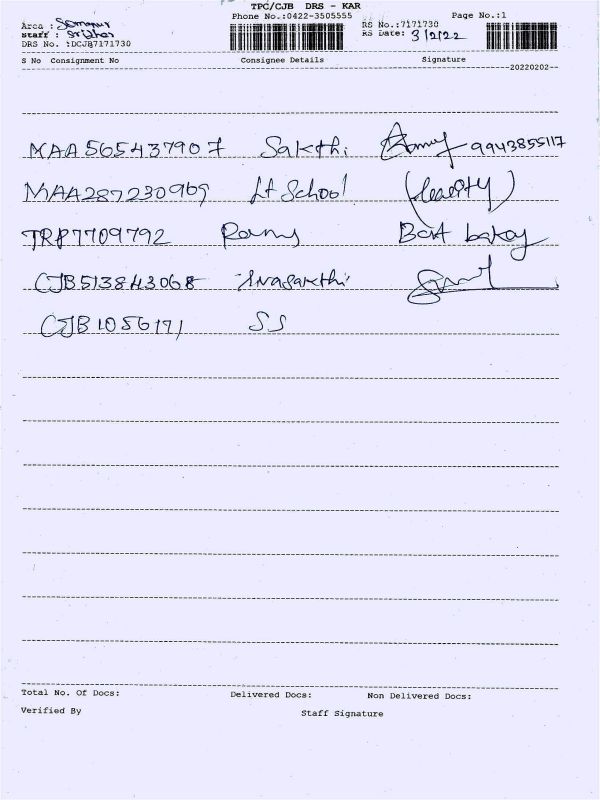 TPC/CJB DRS - KAR
Phone No.:0422-3505555 Page No.:1
Area : Somapur RS No.:7171730
Staff : Sridhar RS Date: 3/2/22
DRS No. :DCJB7171730
S No Consignment No Consignee Details Signature
20220202
MAA565437907 Sakthi 9943855117
MAA287230969 Lt School
TRP7709792 Ramy Best bakay
CJB513843068 Sivasakthi
CJB1056171 SS
Total No. Of Docs: Delivered Docs: Non Delivered Docs:
Verified By Staff Signature